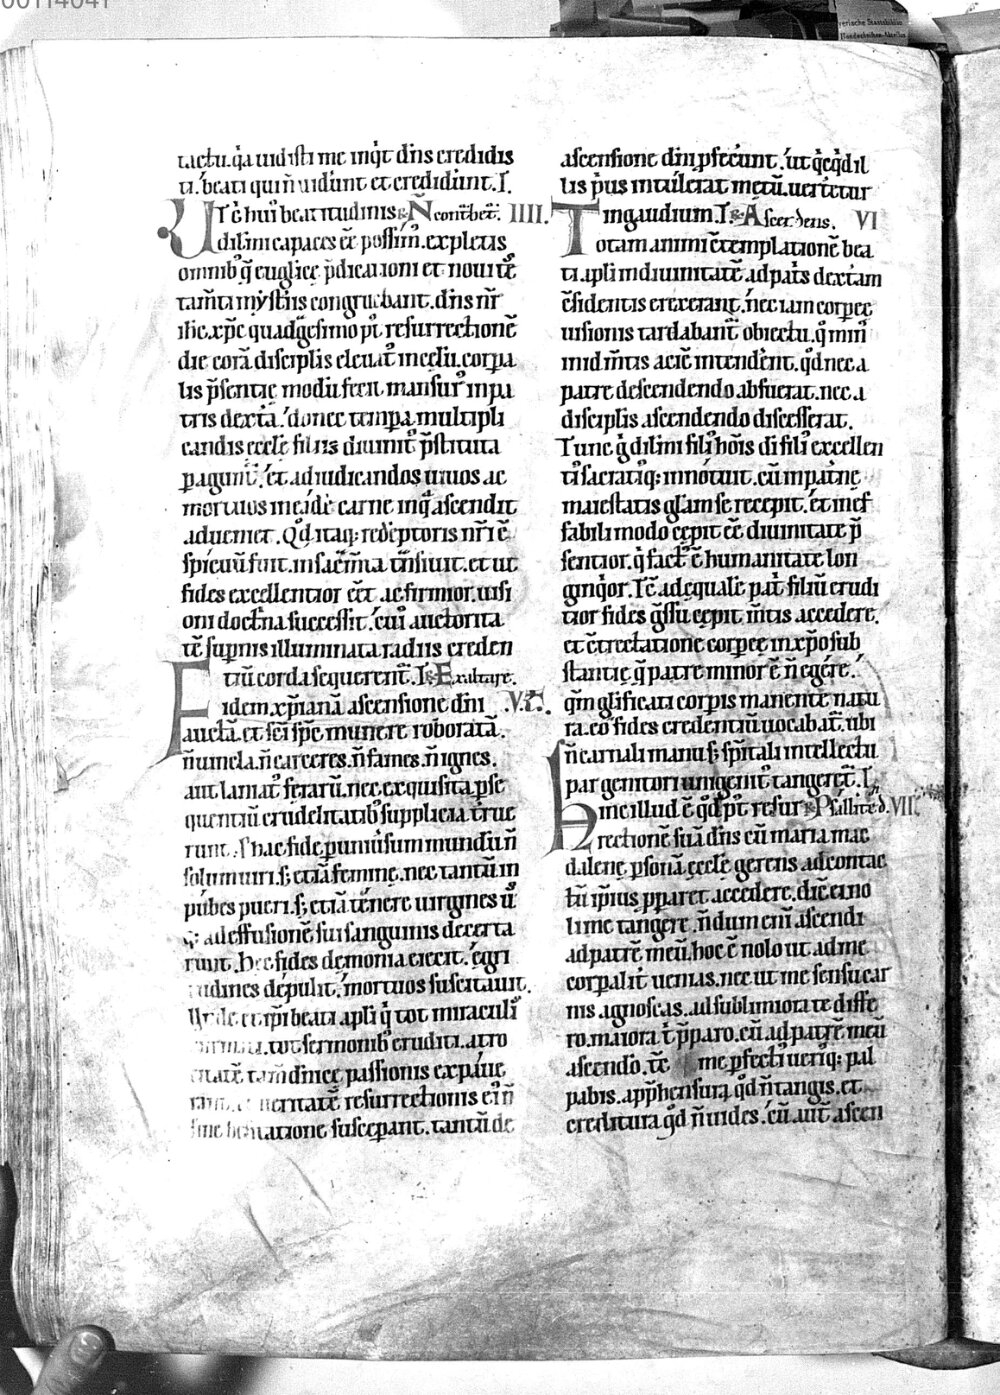 tactu. q̇a uidisti me inq̇t dn̄s credidis
ti. beati qui n̄ uider̄unt et crediderūnt. I.
Ut ē hui᷒ beatitudinis R̄ Non cont̄bet̄. IIII.
dilm̄i capaces eē possim᷒. expletis
omnib᷒ q̄ euglicę p̄dicationi et noui tē
tam̄ti mysteriis congruebant. dn̄s nr̄
ihc xp̄c quadg̃esimo pt᷒ resurrectionē
die corā discipl̄is eleuat᷒ in cęlū. corpa
lis p̄sentię modū fecit mansur᷒ in pa
tris dextā. donec tempa multipli
candis eccłę filiis diuinit᷒ p̄stituta
pagunt᷒. et ad iudicandos uiuos ac
mortuos in eadē carne in q̄ ascendit
adueniet. Qd̄ itaq; redēptoris nr̄i
spicuū fuit. in sacm̄ta tn̄siuit. et ut
fides excellentior eēt ac firmior. uisi
oni doctn̄a successit. cui᷒ auctorita
tē supnis illuminata radiis creden
tiū corda sequerent᷒. I. R̄ Exaltare.
Fidem xp̄ianā ascensione dn̄i V.
auctā. et sci sp̄c munere roboratā.
n̄ uincla. n̄ carceres. n̄ fames. n̄ ignes.
aut laniat᷒ ferarū. nec exquisita pse
quentiū crudelitatib᷒ supplicia t̄rue
runt. P hac fide p uniūsum mundū n̄
solum uiri. s; etiā feminę. nec tantū in
pubes pueri. s; etiā tenerę uirgines us
q; ad effusionē sui sanguinis decerta
runt. Hec fides dęmonia eiecit. ęgri
tudines depulit. mortuos suscitauit.
Unde et ipi beati apli q̇ tot miraculis
tot sermonib᷒ eruditi. atro
citatē tam̄ dn̄icę passionis expaue
rant. ueritatē resurrectionis ei᷒ n̄
sine hesitatione susceperant. tantū de
ascensione dn̄i pfecer̄unt. ut q̇cq̇d il
lis ṗus intulerat metū. uertetur
in gaudium. I. R̄ Ascendens. VI
Totam animi ētemplationē bea
ti apli in diuinitatē ad pat̄s dextam
ēsidentis erexerant. nec iam corpee
uisionis tardabant᷒ obiectu. q̄ min᷒
in id mt̄is aciē intendērent. qd̄ nec a
patre descendendo abfuerat. nec a
discipl̄is ascendendo discesserat.
Tunc g̊ dilm̄i fili᷒ hoīs di fili᷒ excellen
ti᷒ sacrati᷒q; innotuit. cū in patnę
maiestatis glam se recepit. et inef
fabili modo cępit eē diuinitate p̄
sentior. q̇ fact᷒ ē humanitate lon
ginq̇or. Tē ad equalē pat̄ filiū erudi
tior fides g̊ssu cępit mt̄is accedere.
et ētrectatione corpeę in xp̄o sub
stantię q̇ patre minor ē n̄ egēre.
qm̄ glificati corpis manente natu
ra. eo fides credentiū uocabat᷒. ubi
n̄ carnali manu s; sp̄itali intellectu
par genitori unigenit᷒ tangeret᷒. I.
Hinc illud ē qd̄ pt᷒ resur R̄ Psallite d. VII.
rectionē suā dn̄s cū maria mac
dalene psonā eccłę gerens ad contac
tū ipsius pparet accedere. dic̄ ei. no
li me tangere. n̄dum eni ascendi
ad patrē meū. hoc ē nolo ut ad me
corpalit᷒ uenias. nec ut me sensu car
nis agnoscas. ad sublimiora te diffe
ro. maiora t᷒ pparo. cū ad patrē meū
ascendo. tc̄ me pfecti᷒ ueri᷒q; pal
pabis. app̄hensura qd̄ n̄ tangis. et
creditura qd̄ n̄ uides. cū aut̄ ascen